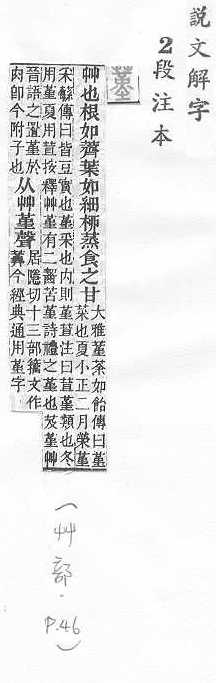 說文解字
2段注本
艸也根如薺葉如細桺蒸食之甘
大雅菫荼如飴傳曰菫
菜也夏小正二月榮菫
采蘩傳曰皆豆實也菫采也内則菫荁注曰荁菫類也冬
用菫夏用荁按釋艸菫有二齧苦菫詩禮之菫也芨菫艸
晉語之置菫於
肉卽今附子也
从艸堇聲
居隱切十三部籒文作
今經典通用堇字
(艸部．P.46)